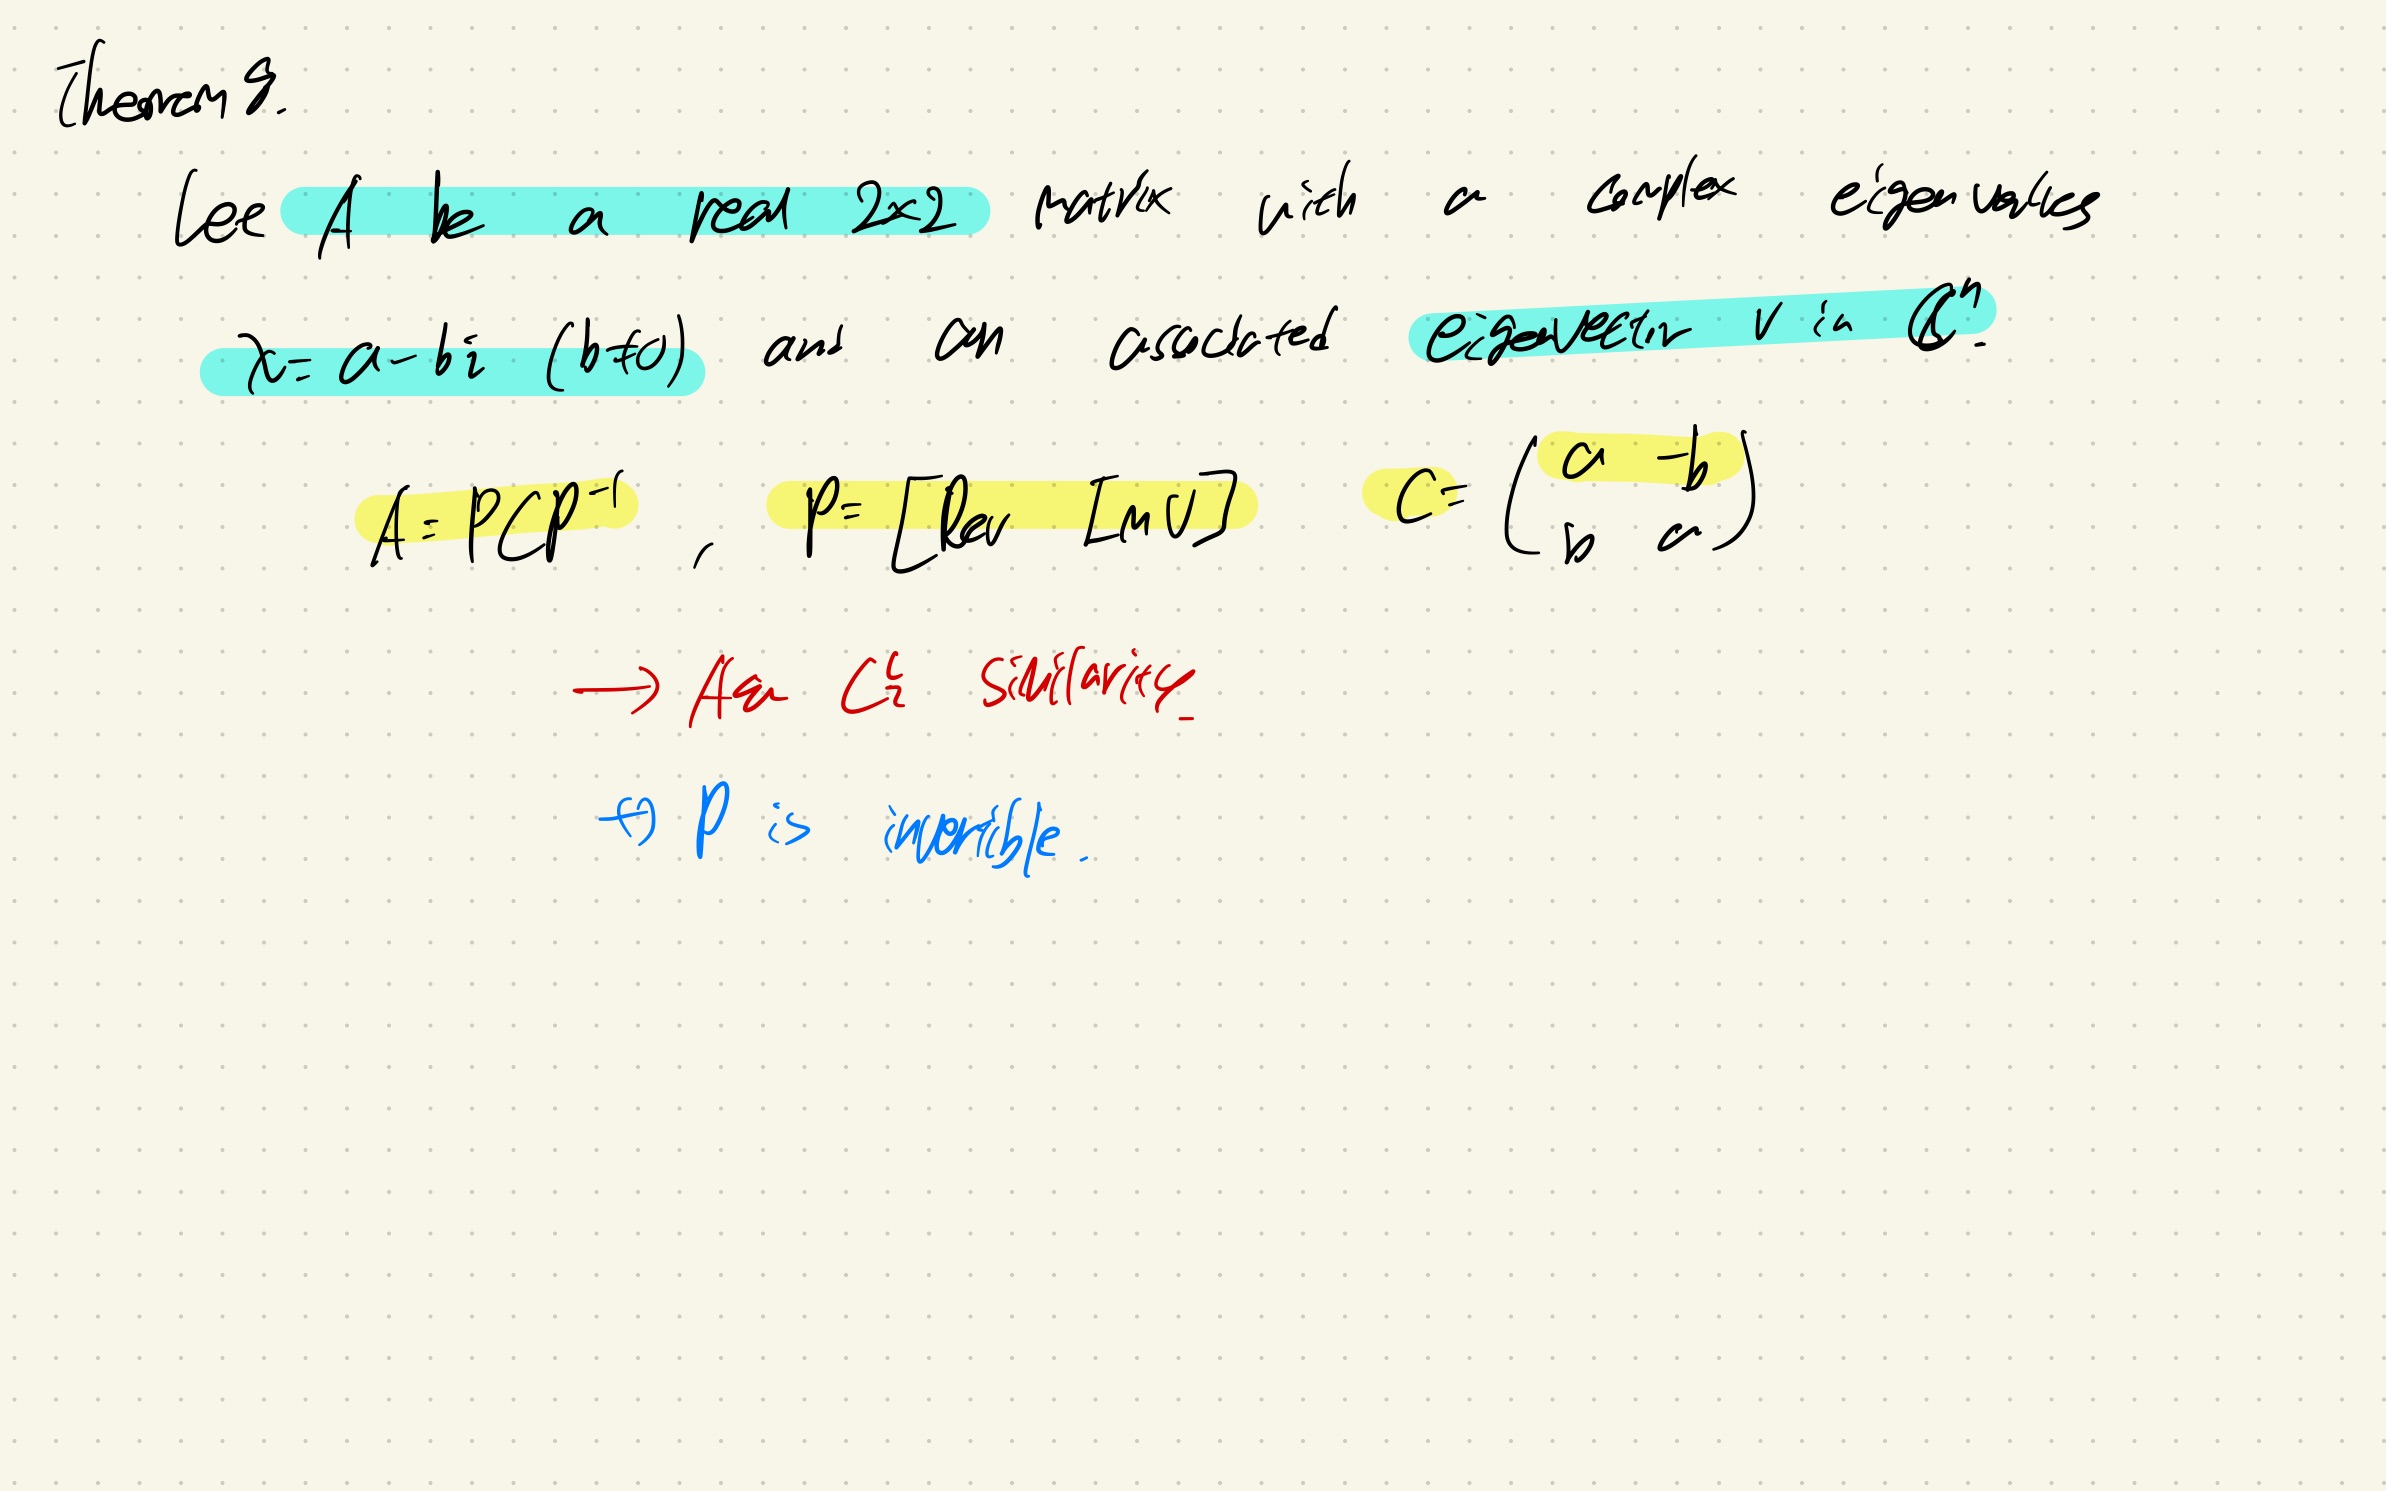 Theorem 9.
Let A be a real 2×2 matrix with a complex eigenvalues
λ = a - bi (b≠0) and an associated eigenvector v in ℂⁿ.
A = PCP⁻¹, P = [Rev Imv] C = (a -b
b a)
→ A와 C는 similarity.
→ P is